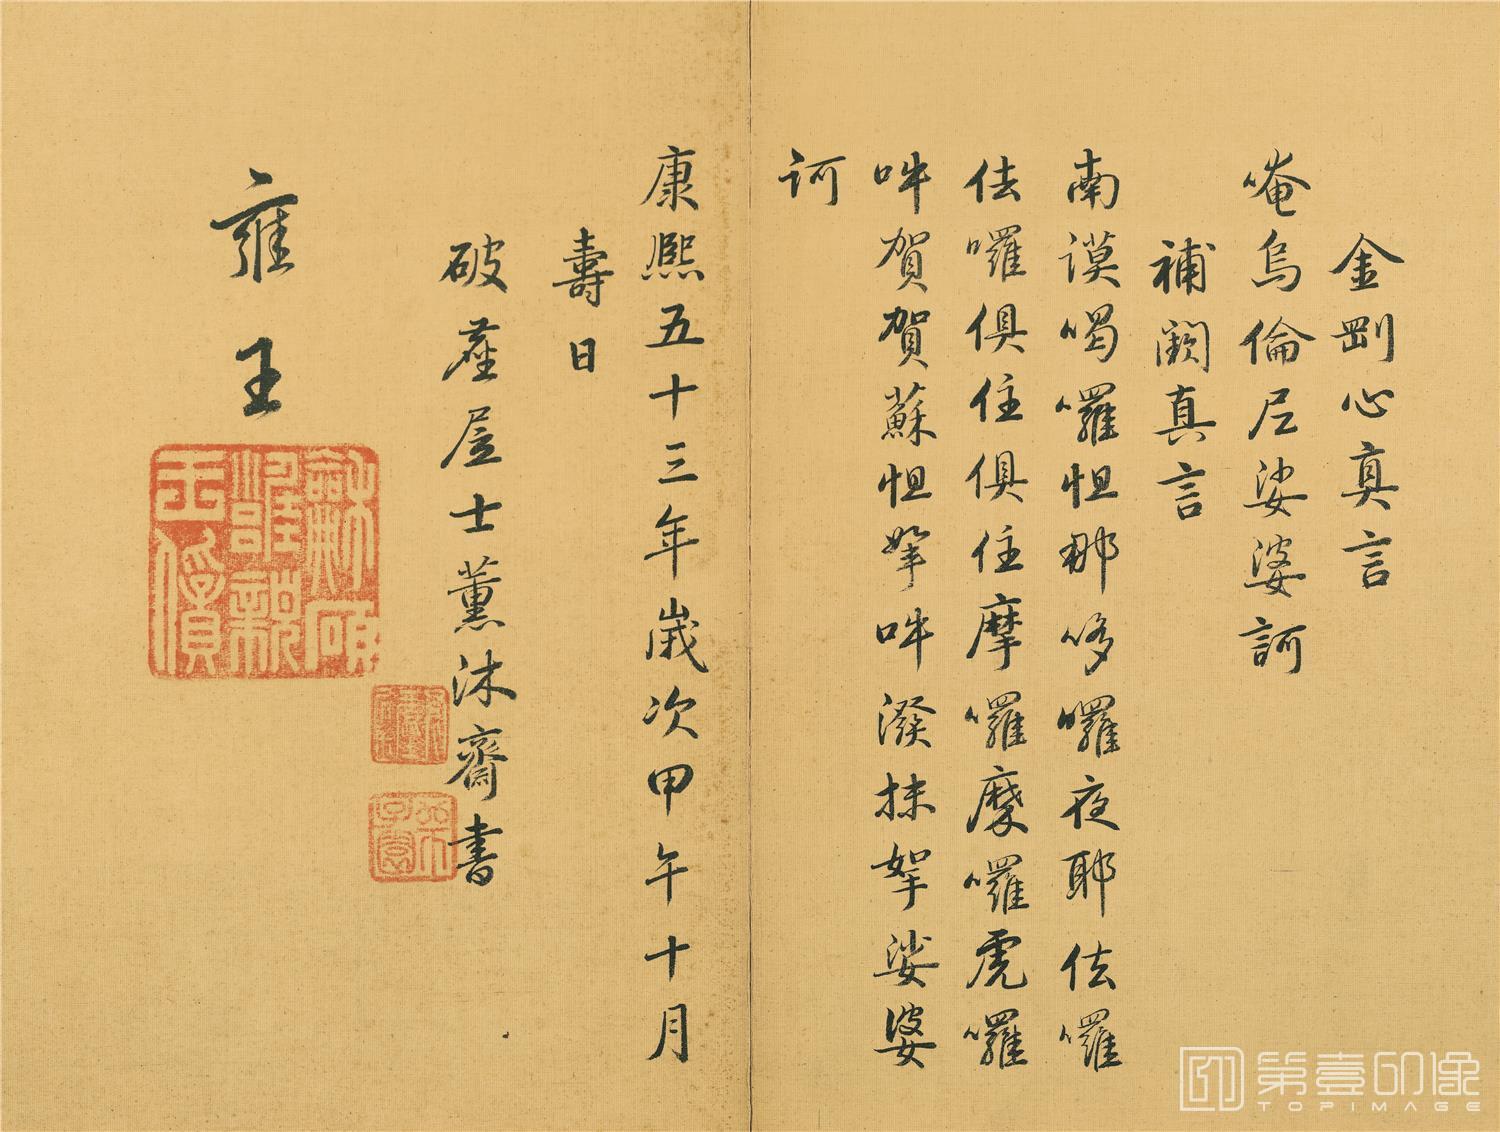 金剛心真言
唵烏倫尼娑婆訶
補闕真言
南謨喝囉怛那哆囉夜耶佉囉
佉囉俱住俱住摩囉摩囉虎囉
吽賀賀蘇怛拏吽潑抹拏娑婆
訶
康熙五十三年歲次甲午十月
壽日
破塵居士薰沐齋書
雍王
和碩雍親王寶
第壹印像
TOPIMAGE